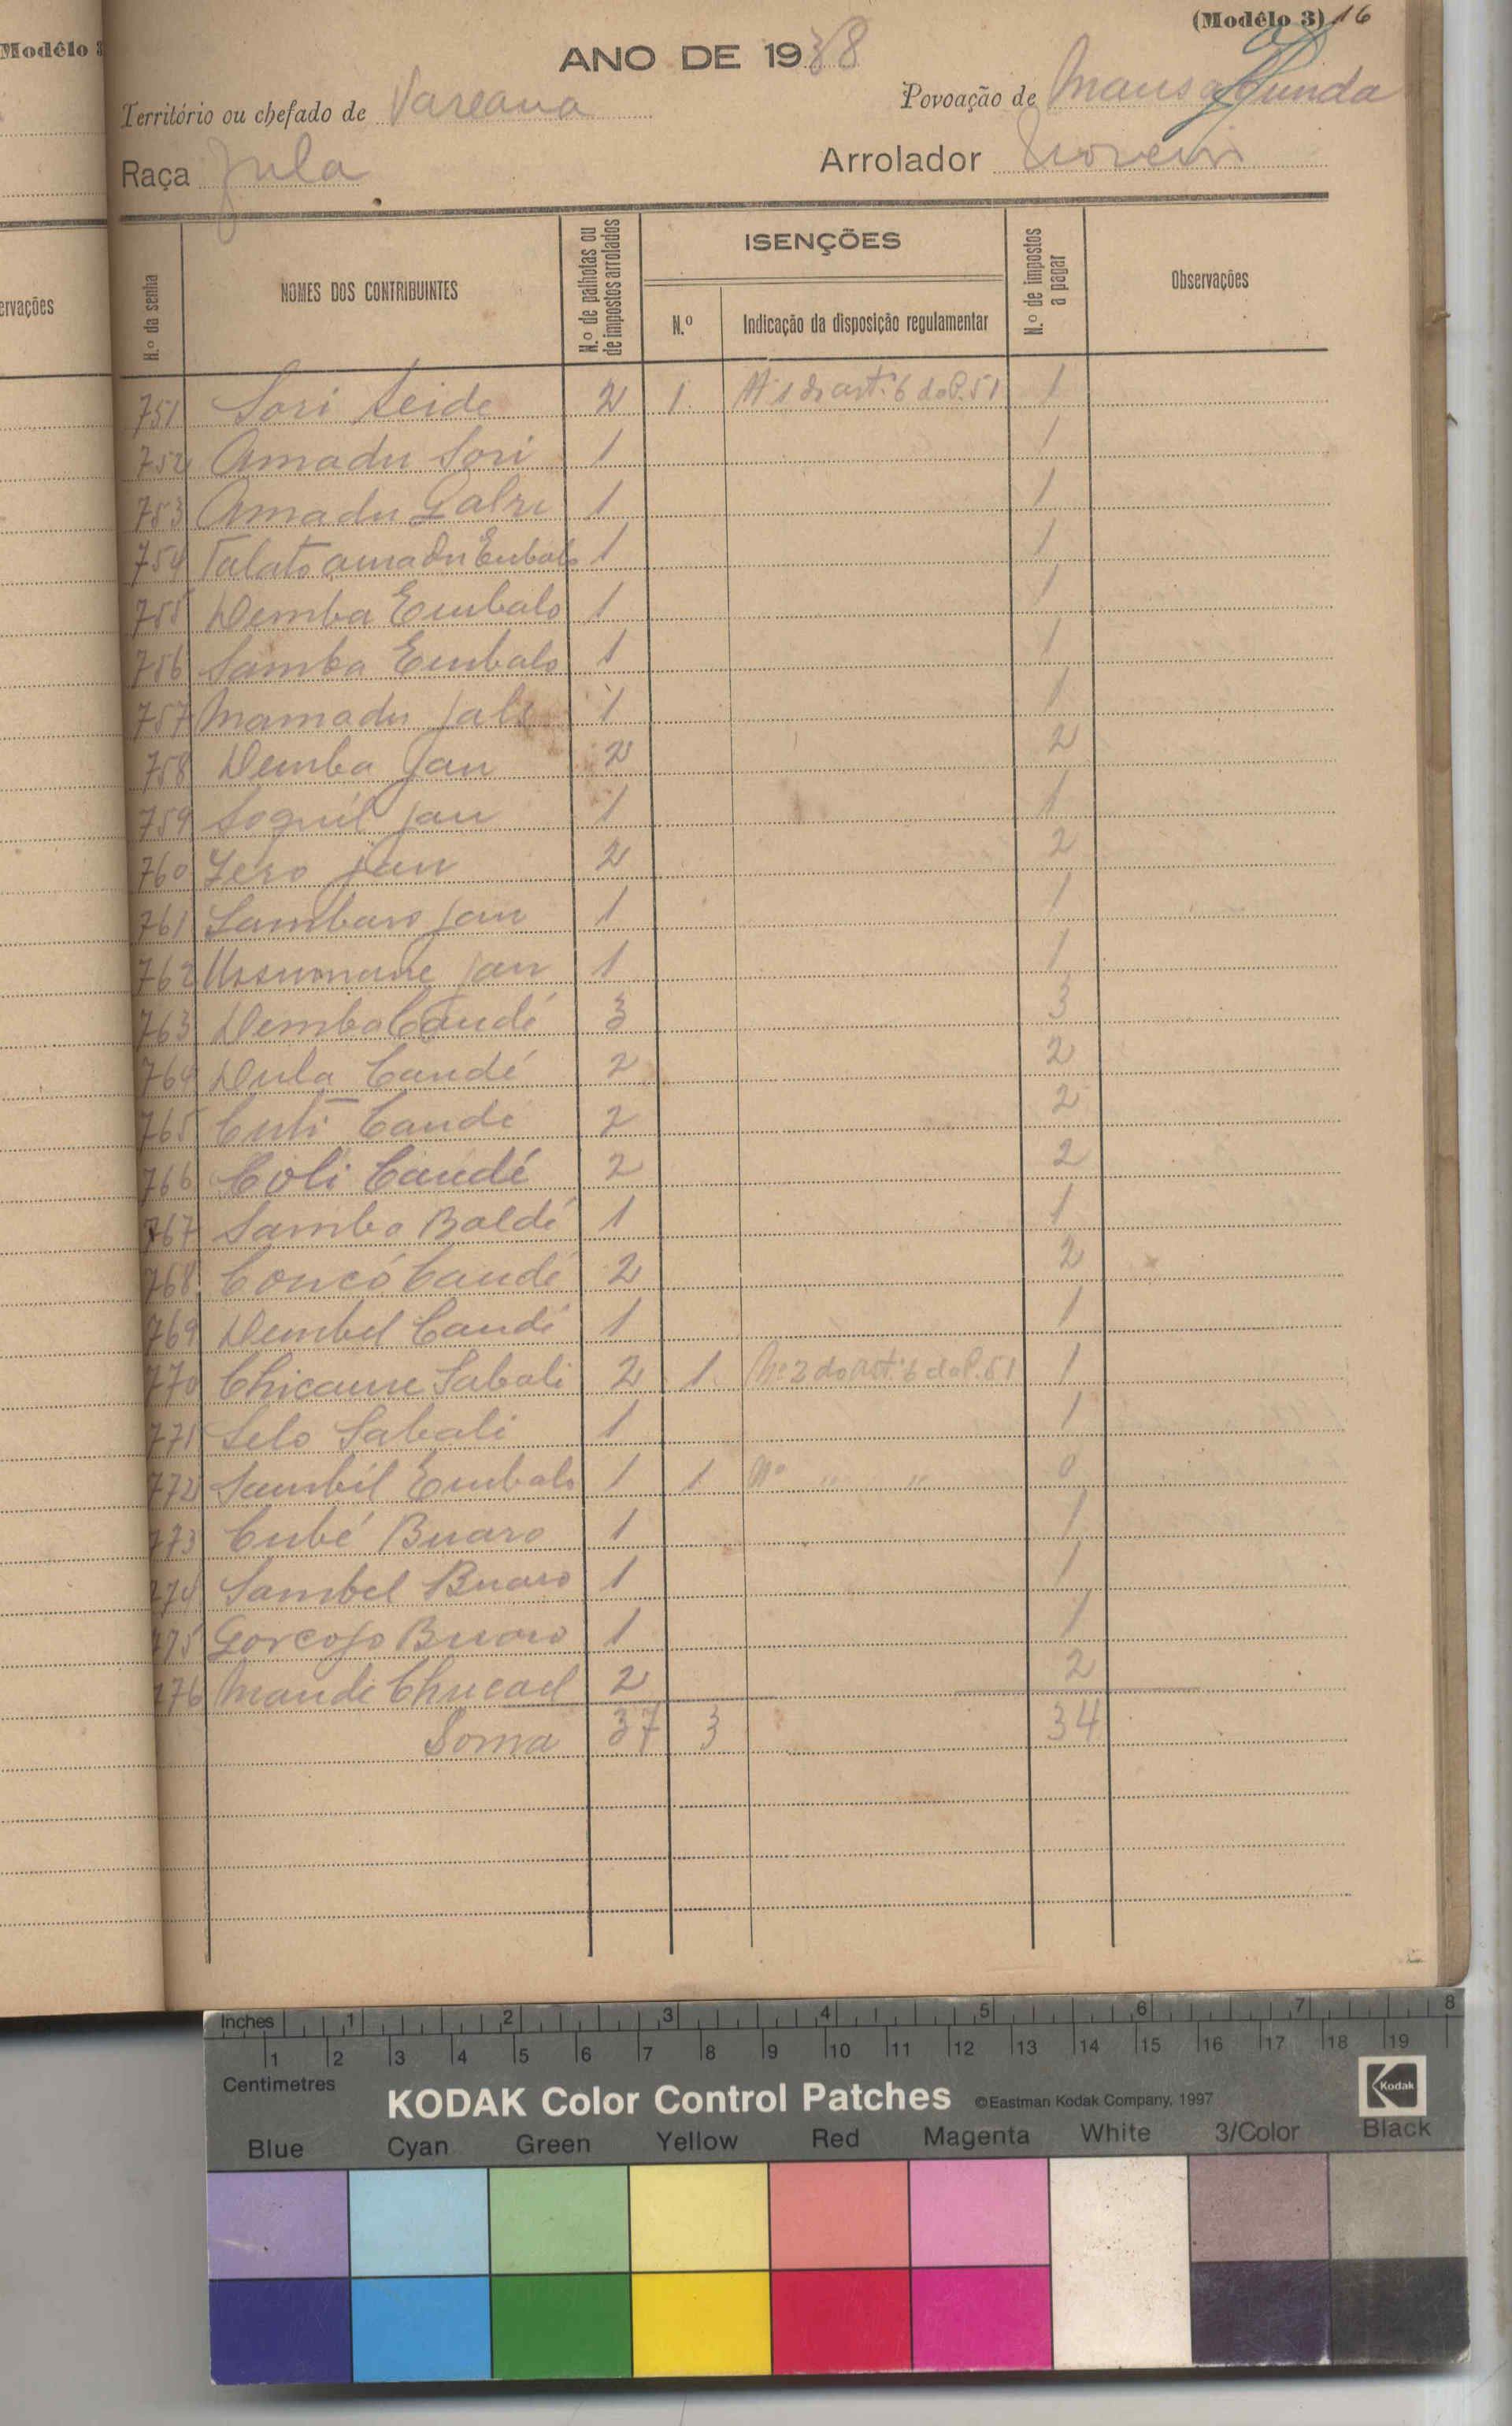 Modêlo 3
(Modêlo 3) 16
ANO DE 1938
Território ou chefado de
Povoação de Mansa
Raça Fula
Arrolador
ervações
N.º da senha
NOMES DOS CONTRIBUINTES
N.º de palhotas ou de impostos arrolados
ISENÇÕES
N.º
Indicação da disposição regulamentar
N.º de impostos a pagar
Observações
751 Sori Seide 2 1 Nº 1 do art.º 6 do P. 51 1
752 Amadu Sori 1 1
753 Amadu 1 1
754 Talato Amadu Embalo 1 1
755 Demba Embalo 1 1
756 Samba Embalo 1 1
757 Mamadu Jalo 1 1
758 Demba Jau 2 2
759 Jau 1 1
760 Jau 2 2
761 Sambaro Jau 1 1
762 Ussumane Jau 1 1
763 Demba Candé 3 3
764 Dula Candé 2 2
765 Cuti Candé 2 2
766 Coli Candé 2 2
767 Samba Baldé 1 1
768 Concó Candé 2 2
769 Dembel Candé 1 1
770 Chicaune Sabali 2 1 Nº 2 do art.º 6 do P. 51 1
771 Selo Sabali 1 1
772 Sambil Embalo 1 1 Nº " " 0
773 Cubé Buaro 1 1
774 Sambel Buaro 1 1
775 Buaro 1 1
776 2 2
Soma 37 3 34
Inches 1 2 3 4 5 6 7 8
1 2 3 4 5 6 7 8 9 10 11 12 13 14 15 16 17 18 19
Centimetres
KODAK Color Control Patches ©Eastman Kodak Company, 1997 Kodak
Blue Cyan Green Yellow Red Magenta White 3/Color Black